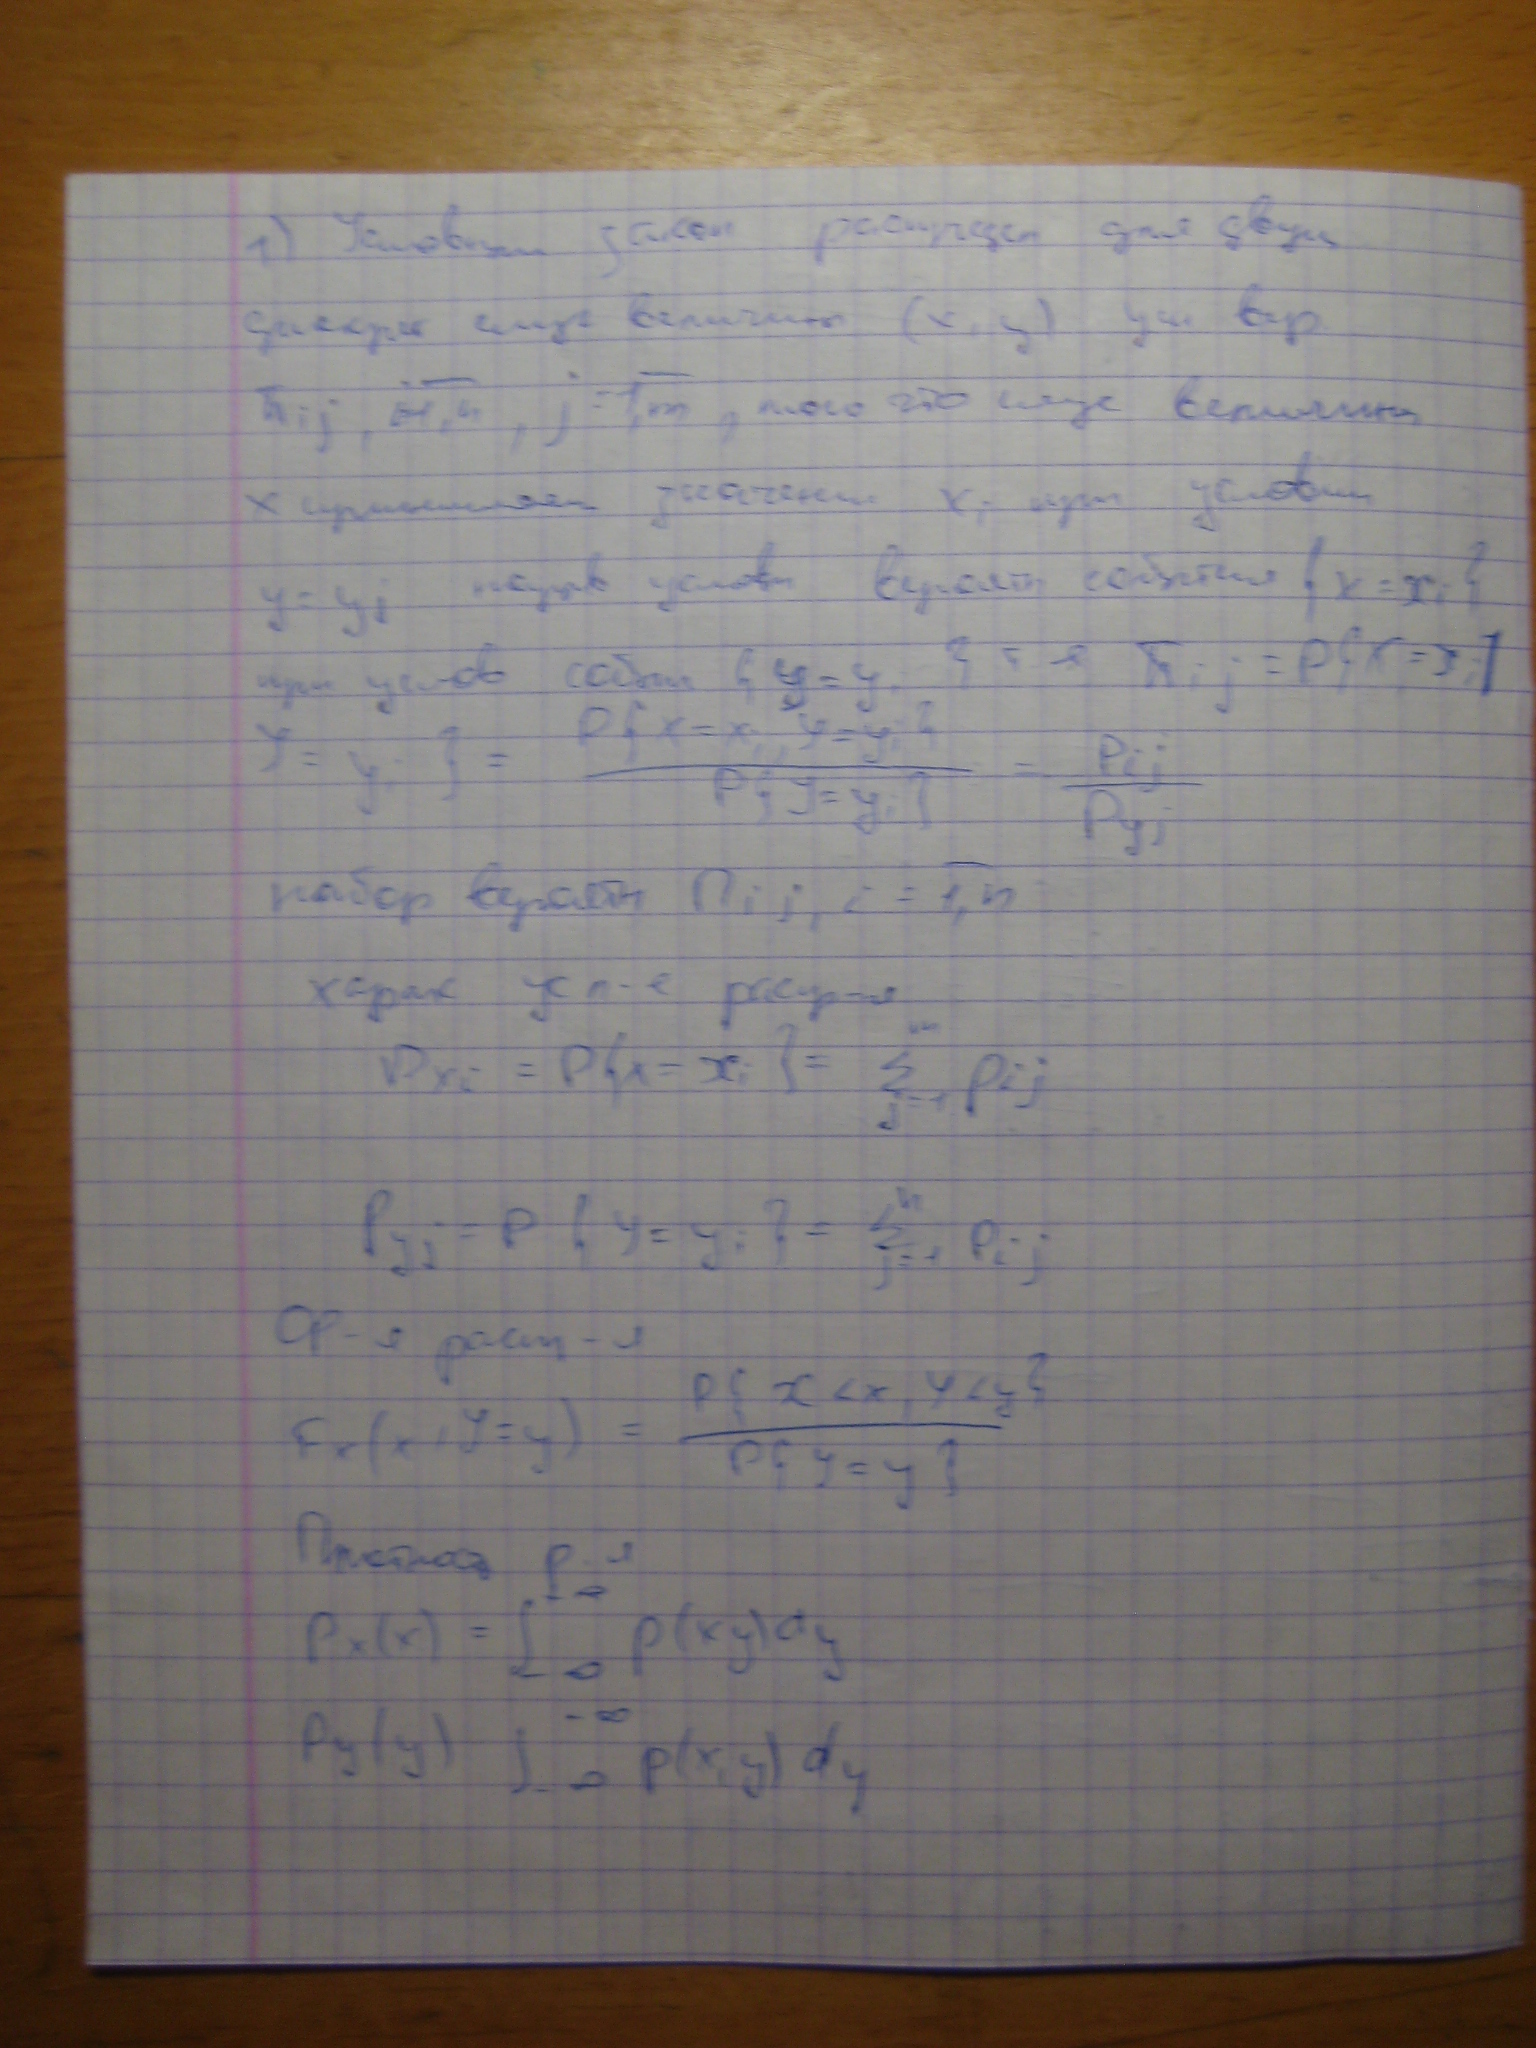 1) Условный закон распредел для двум
дискрет случ величины (x, y) усл вер
π i j, i=1,n, j=1,m, того что случ величина
x принимает значение x i при условии
y = y j назыв условн вероятн события {x = x i}
при услов событи {y = y i} т-я π i j = P{X = x i |
Y = y i } = P{X = x i, Y = y i} / P{Y = y i} = P i j / P y j
набор вероятн П i j, i = 1,n
харак усл-е распр-я
P x i = P{x = x i } = ∑ j=1 m p i j
P y j = P { Y = y i } = ∑ j=1 n P i j
Ф-я расп-я
F x (x, Y = y) = P{ X < x, Y < y} / P{ Y = y }
Плотность р-я
P x (x) = ∫ -∞ p(xy) dy
P y (y) ∫ -∞ p(x,y) dy